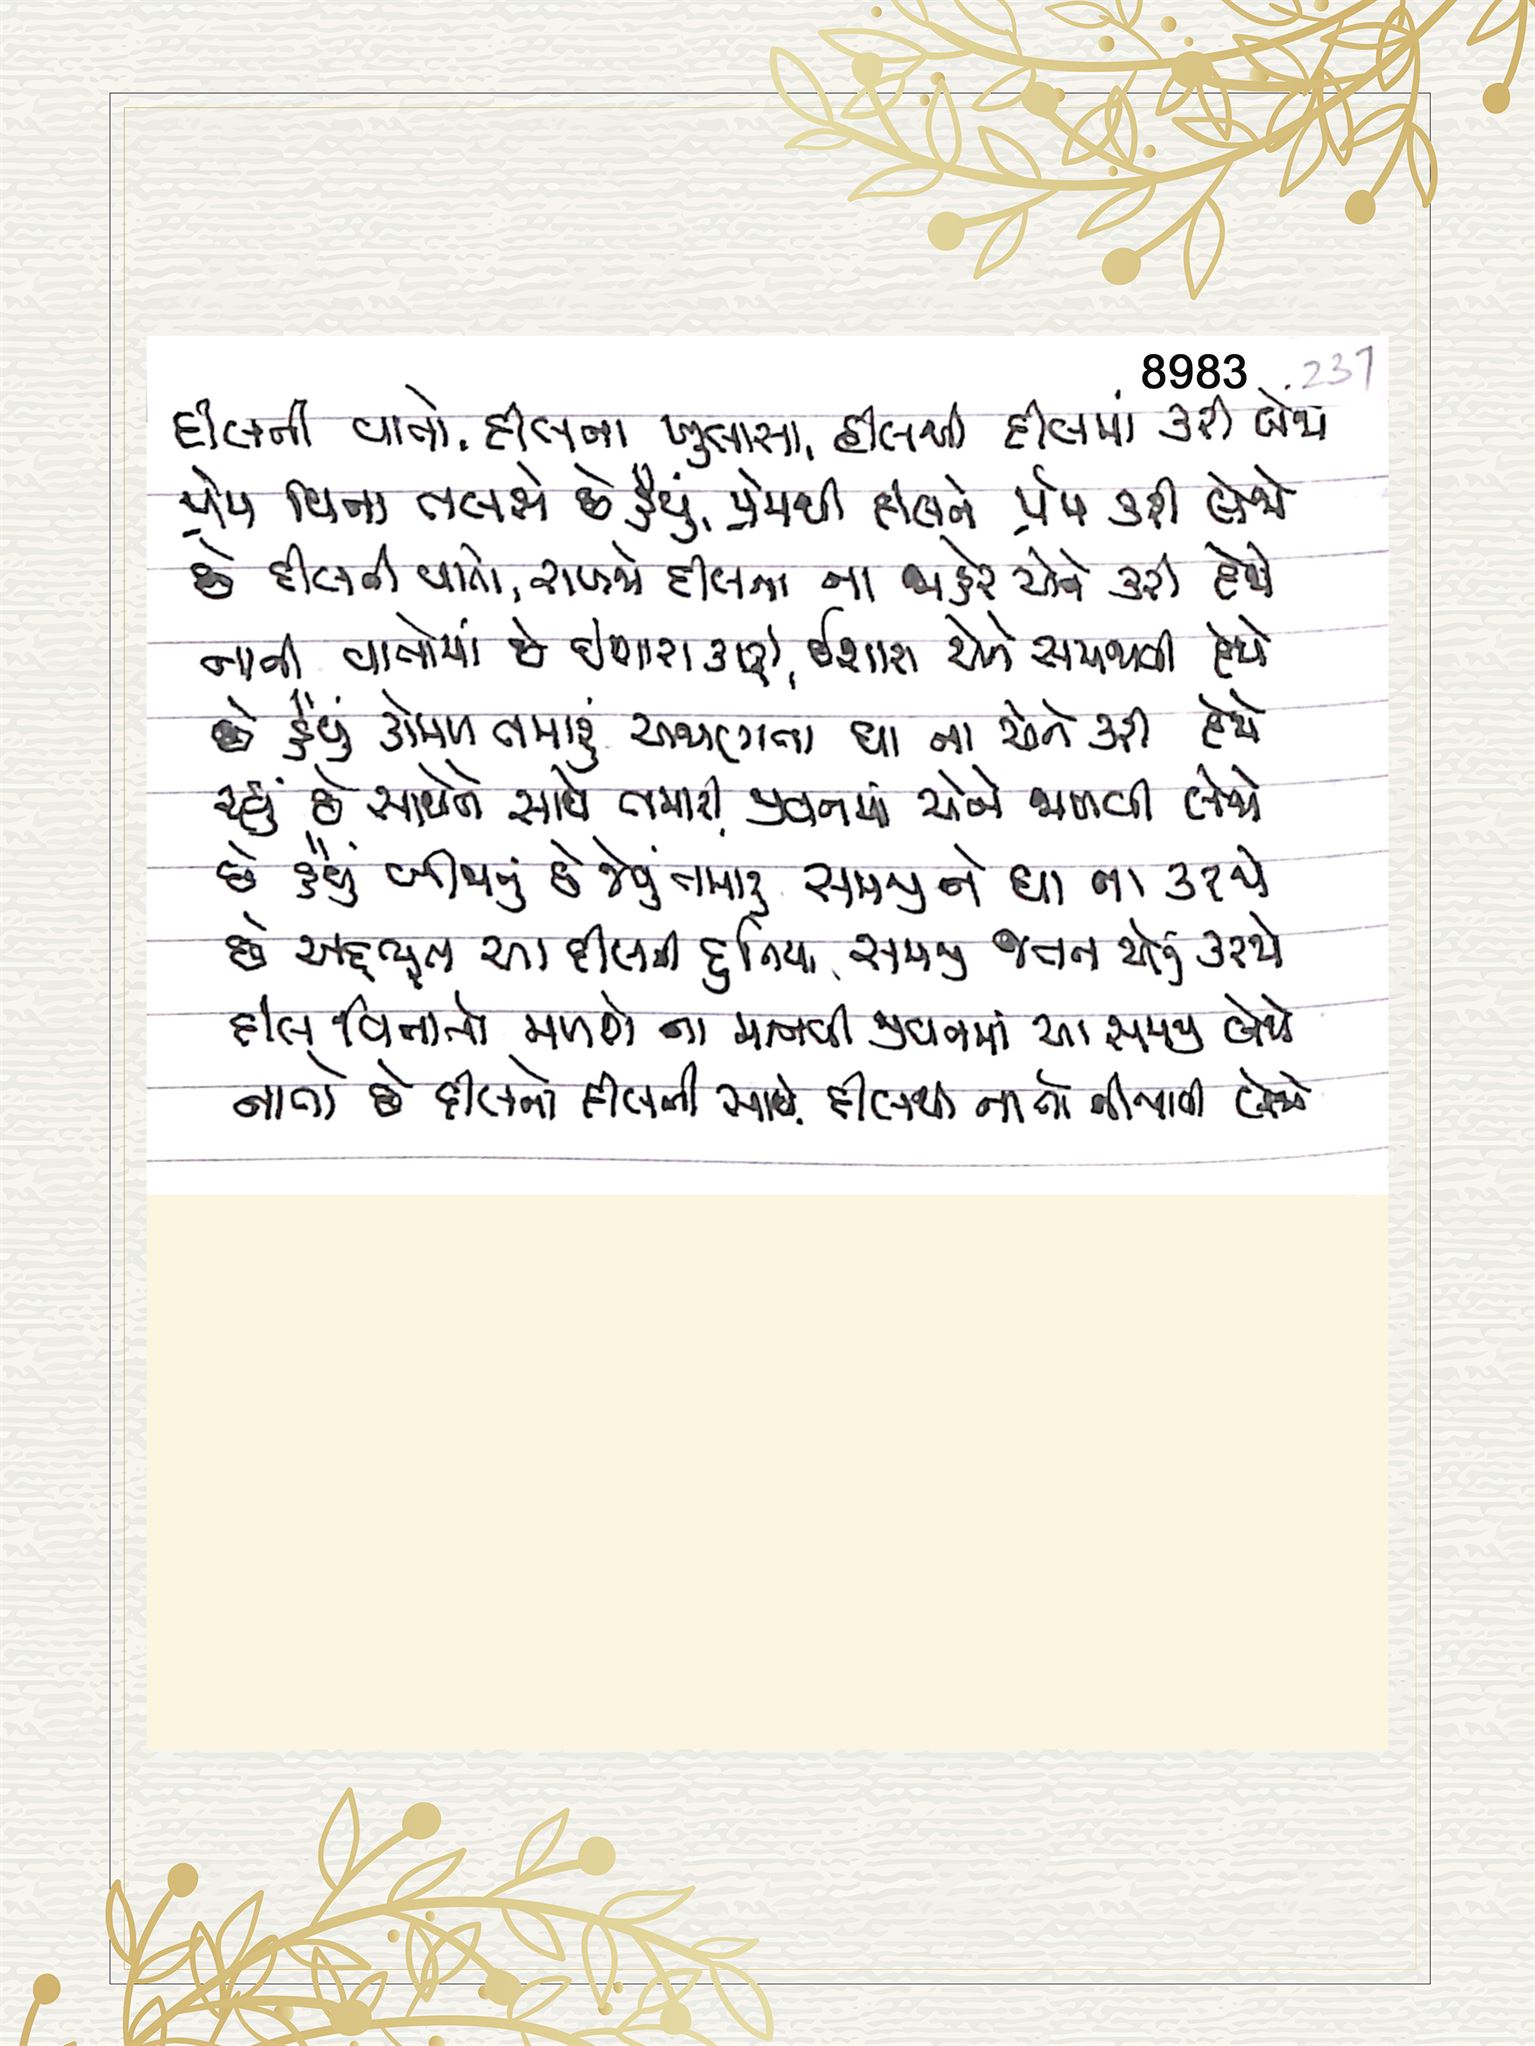 8983 237
દીલની વાતો, દીલના ખુલાસા, દીલથી દીલમાં કરી લેજો
પ્રેમ વિના તલસે છે હૈયું, પ્રેમથી દીલને પ્રેમ કરી લેજો
છે દીલની વાતો, રાખજો દીલમાં ના જાહેર એને કરી દેજો
નાની વાતોમાં છે ઈશારા કાફી, ઈશારા એને સમજાવી દેજો
છે હૈયું કોમળ તમારું અજાણતા ઘા ના એને કરી દેજો
રહ્યું છે સાથેને સાથે તમારી, જીવનમાં એને જાળવી લેજો
છે હૈયું બીજાનું છે જેવું તમારું સમજીને ઘા ના કરજો
છે અદ્ભુત આ દીલની દુનિયા, સમજી જતન એનું કરજો
દીલ વિનાનો મળશે ના માનવી જીવનમાં આ સમજી લેજો
નાતો છે દીલનો દીલની સાથે, દીલથી નાતો નીભાવી લેજો